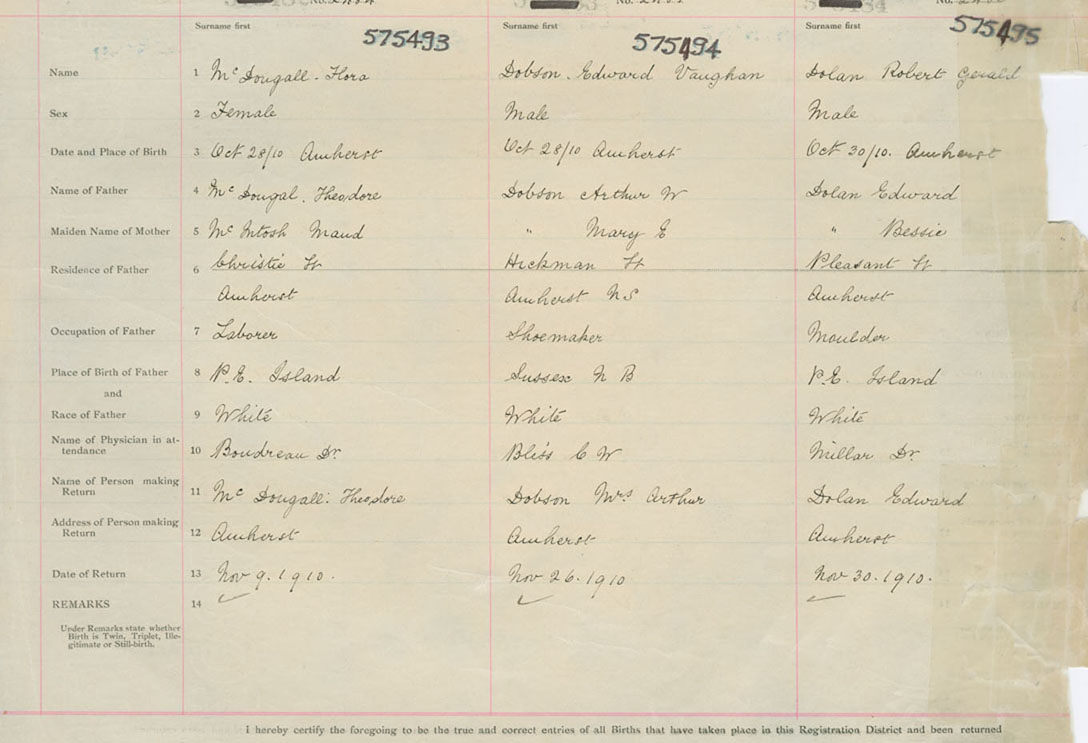 No.
No.
No.
Surname first
Surname first
Surname first
575493
575494
575495
Name 1 Mc Dougall. Flora Dobson. Edward Vaughan Dolan Robert Gerald
Sex 2 Female Male Male
Date and Place of Birth 3 Oct 28/10 Amherst Oct 28/10 Amherst Oct 30/10. Amherst
Name of Father 4 Mc Dougal. Theodore Dobson Arthur W Dolan Edward
Maiden Name of Mother 5 Mc Intosh Maud " Mary E " Bessie
Residence of Father 6 Christie St Hickman St Pleasant St
Amherst Amherst N S Amherst
Occupation of Father 7 Laborer Shoemaker Moulder
Place of Birth of Father 8 P. E. Island Sussex N B P. E. Island
and
Race of Father 9 White White White
Name of Physician in at-
tendance 10 Boudreau Dr. Bliss C W Millar Dr.
Name of Person making
Return 11 Mc Dougall. Theodore Dobson Mrs Arthur Dolan Edward
Address of Person making
Return 12 Amherst Amherst Amherst
Date of Return 13 Nov 9. 1910. Nov 26. 1910 Nov 30. 1910.
REMARKS 14
Under Remarks state whether
Birth is Twin, Triplet, Ille-
gitimate or Still-birth.
I hereby certify the foregoing to be the true and correct entries of all Births that have taken place in this Registration District and been returned